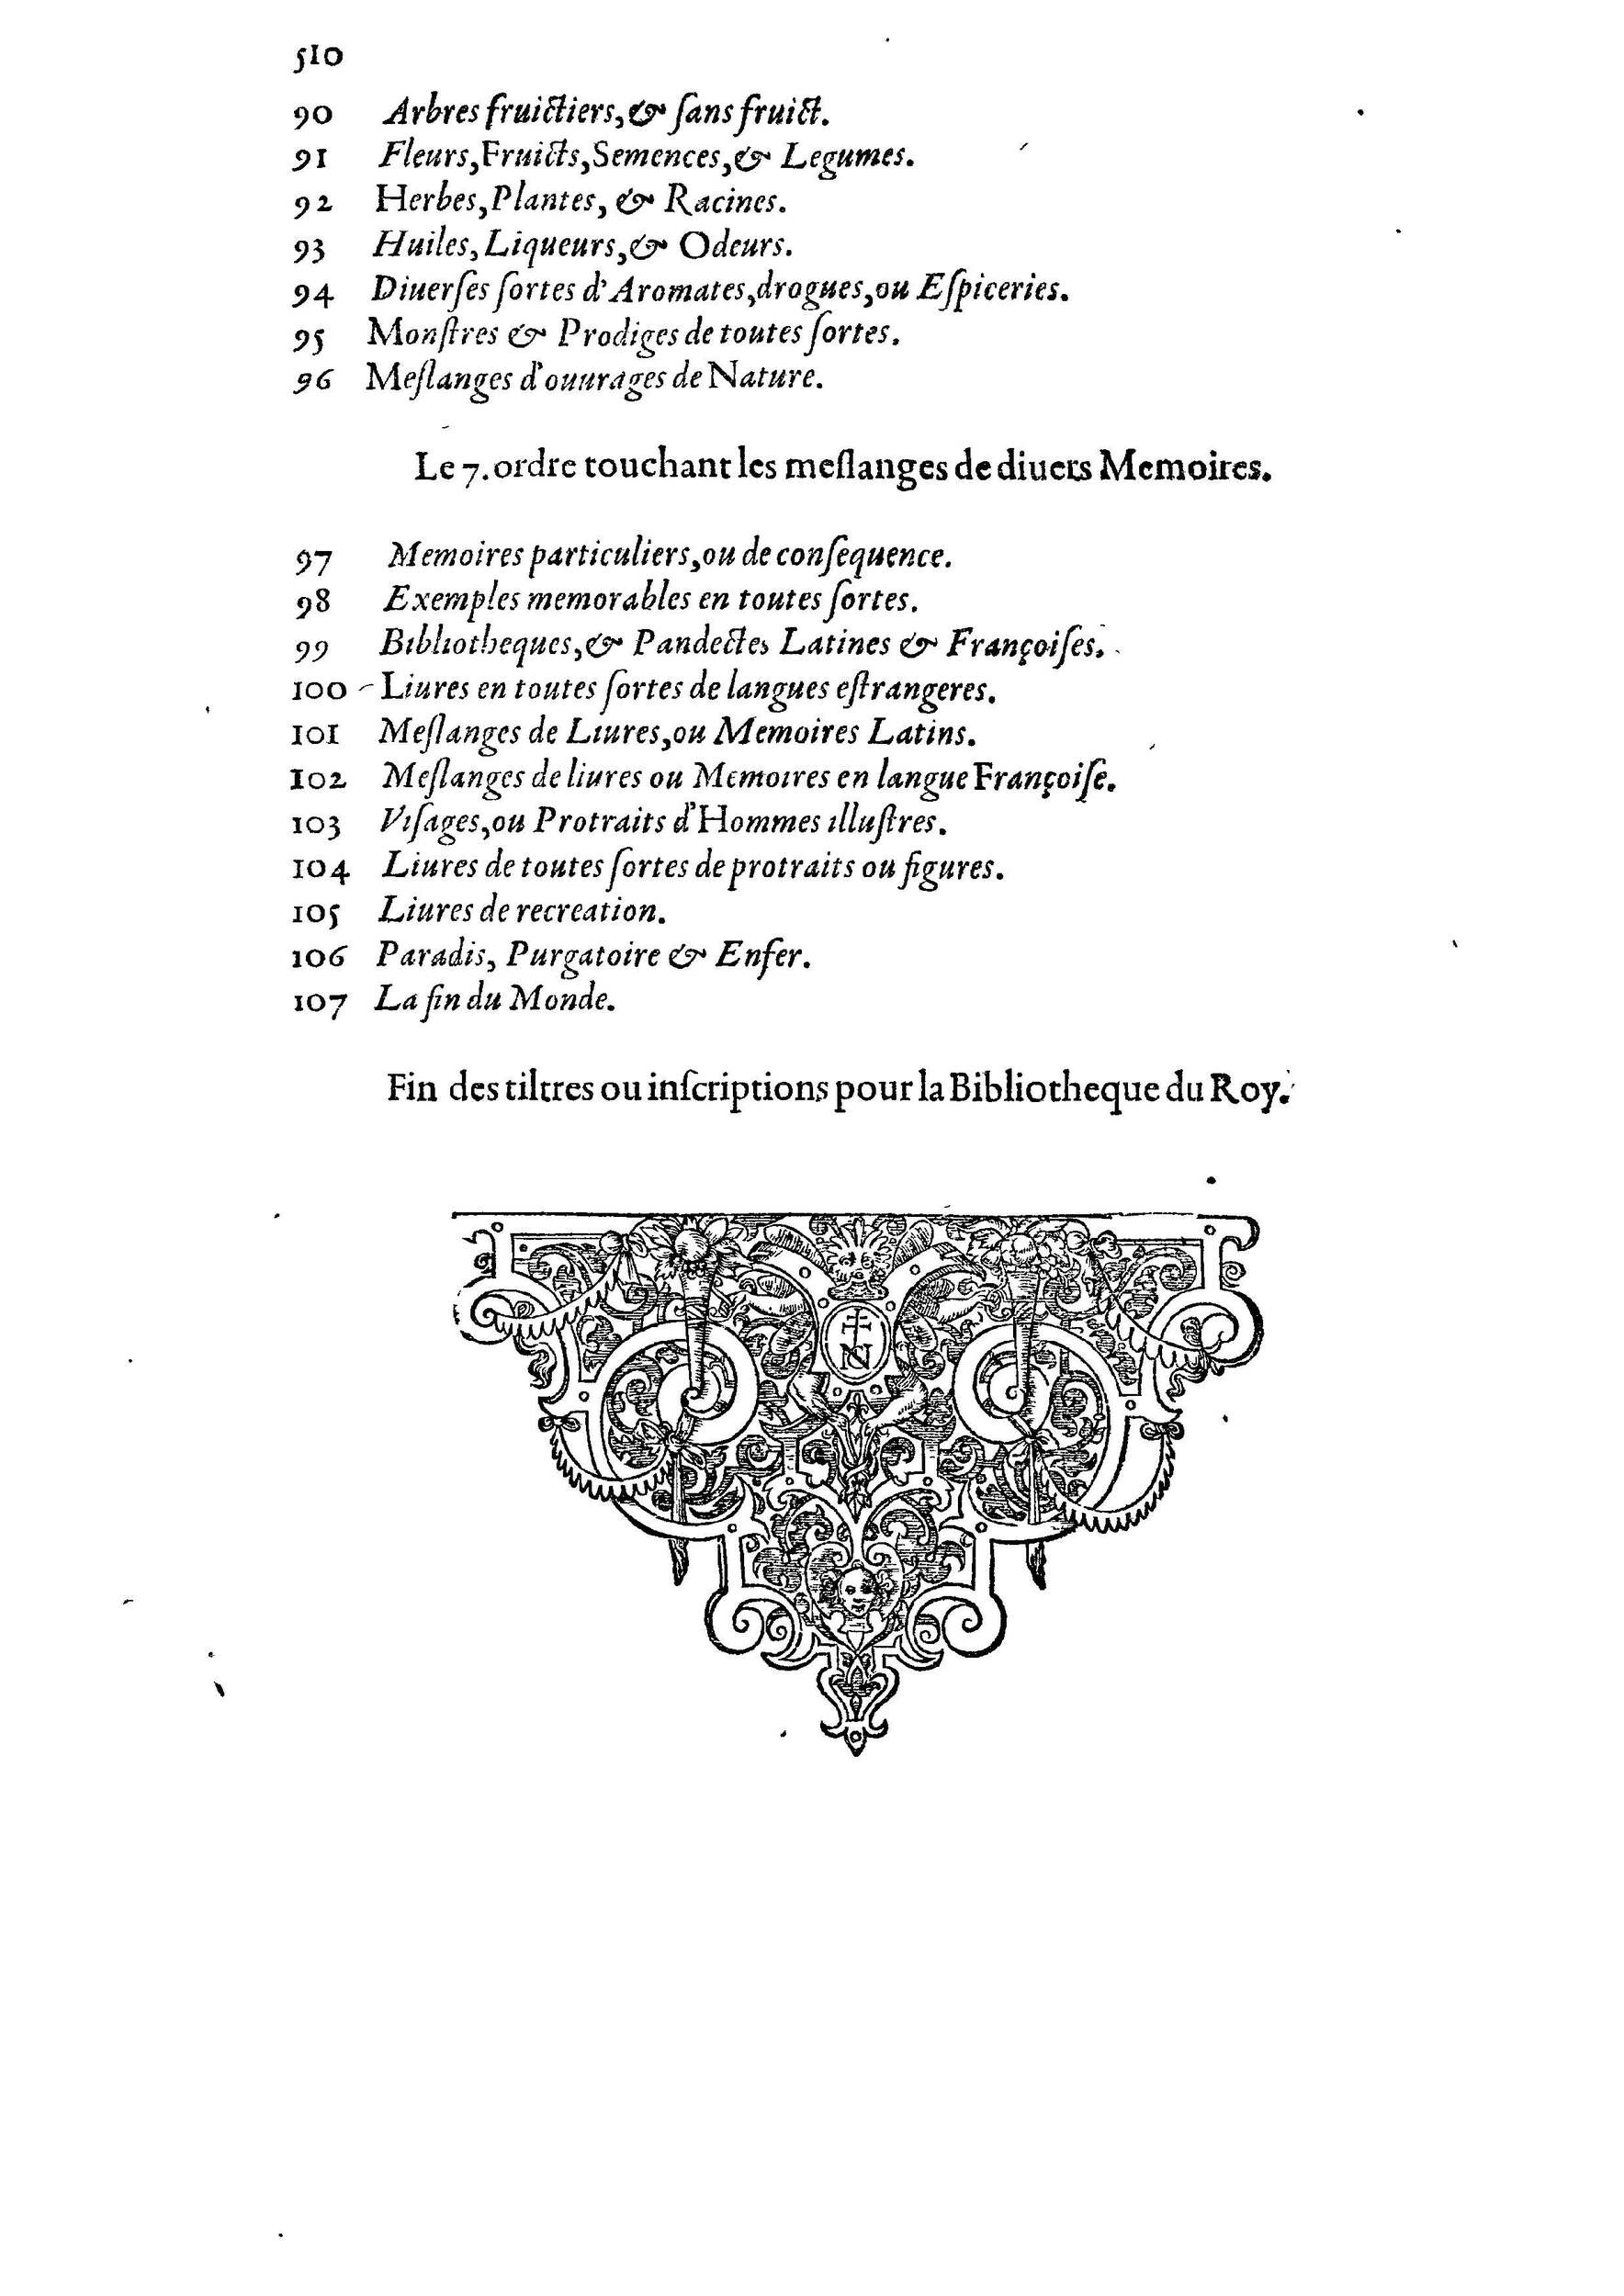 510
90 Arbres fruictiers, & ſans fruict.
91 Fleurs, Fruicts, Semences, & Legumes.
92 Herbes, Plantes, & Racines.
93 Huiles, Liqueurs, & Odeurs.
94 Diuerſes ſortes d'Aromates, drogues, ou Eſpiceries.
95 Monſtres & Prodiges de toutes ſortes.
96 Meſlanges d'ouurages de Nature.
Le 7. ordre touchant les meſlanges de diuers Memoires.
97 Memoires particuliers, ou de conſequence.
98 Exemples memorables en toutes ſortes.
99 Bibliotheques, & Pandectes Latines & Françoiſes.
100 Liures en toutes ſortes de langues eſtrangeres.
101 Meſlanges de Liures, ou Memoires Latins.
102 Meſlanges de liures ou Memoires en langue Françoiſe.
103 Viſages, ou Protraits d'Hommes illuſtres.
104 Liures de toutes ſortes de protraits ou figures.
105 Liures de recreation.
106 Paradis, Purgatoire & Enfer.
107 La fin du Monde.
Fin des tiltres ou inſcriptions pour la Bibliotheque du Roy.
N